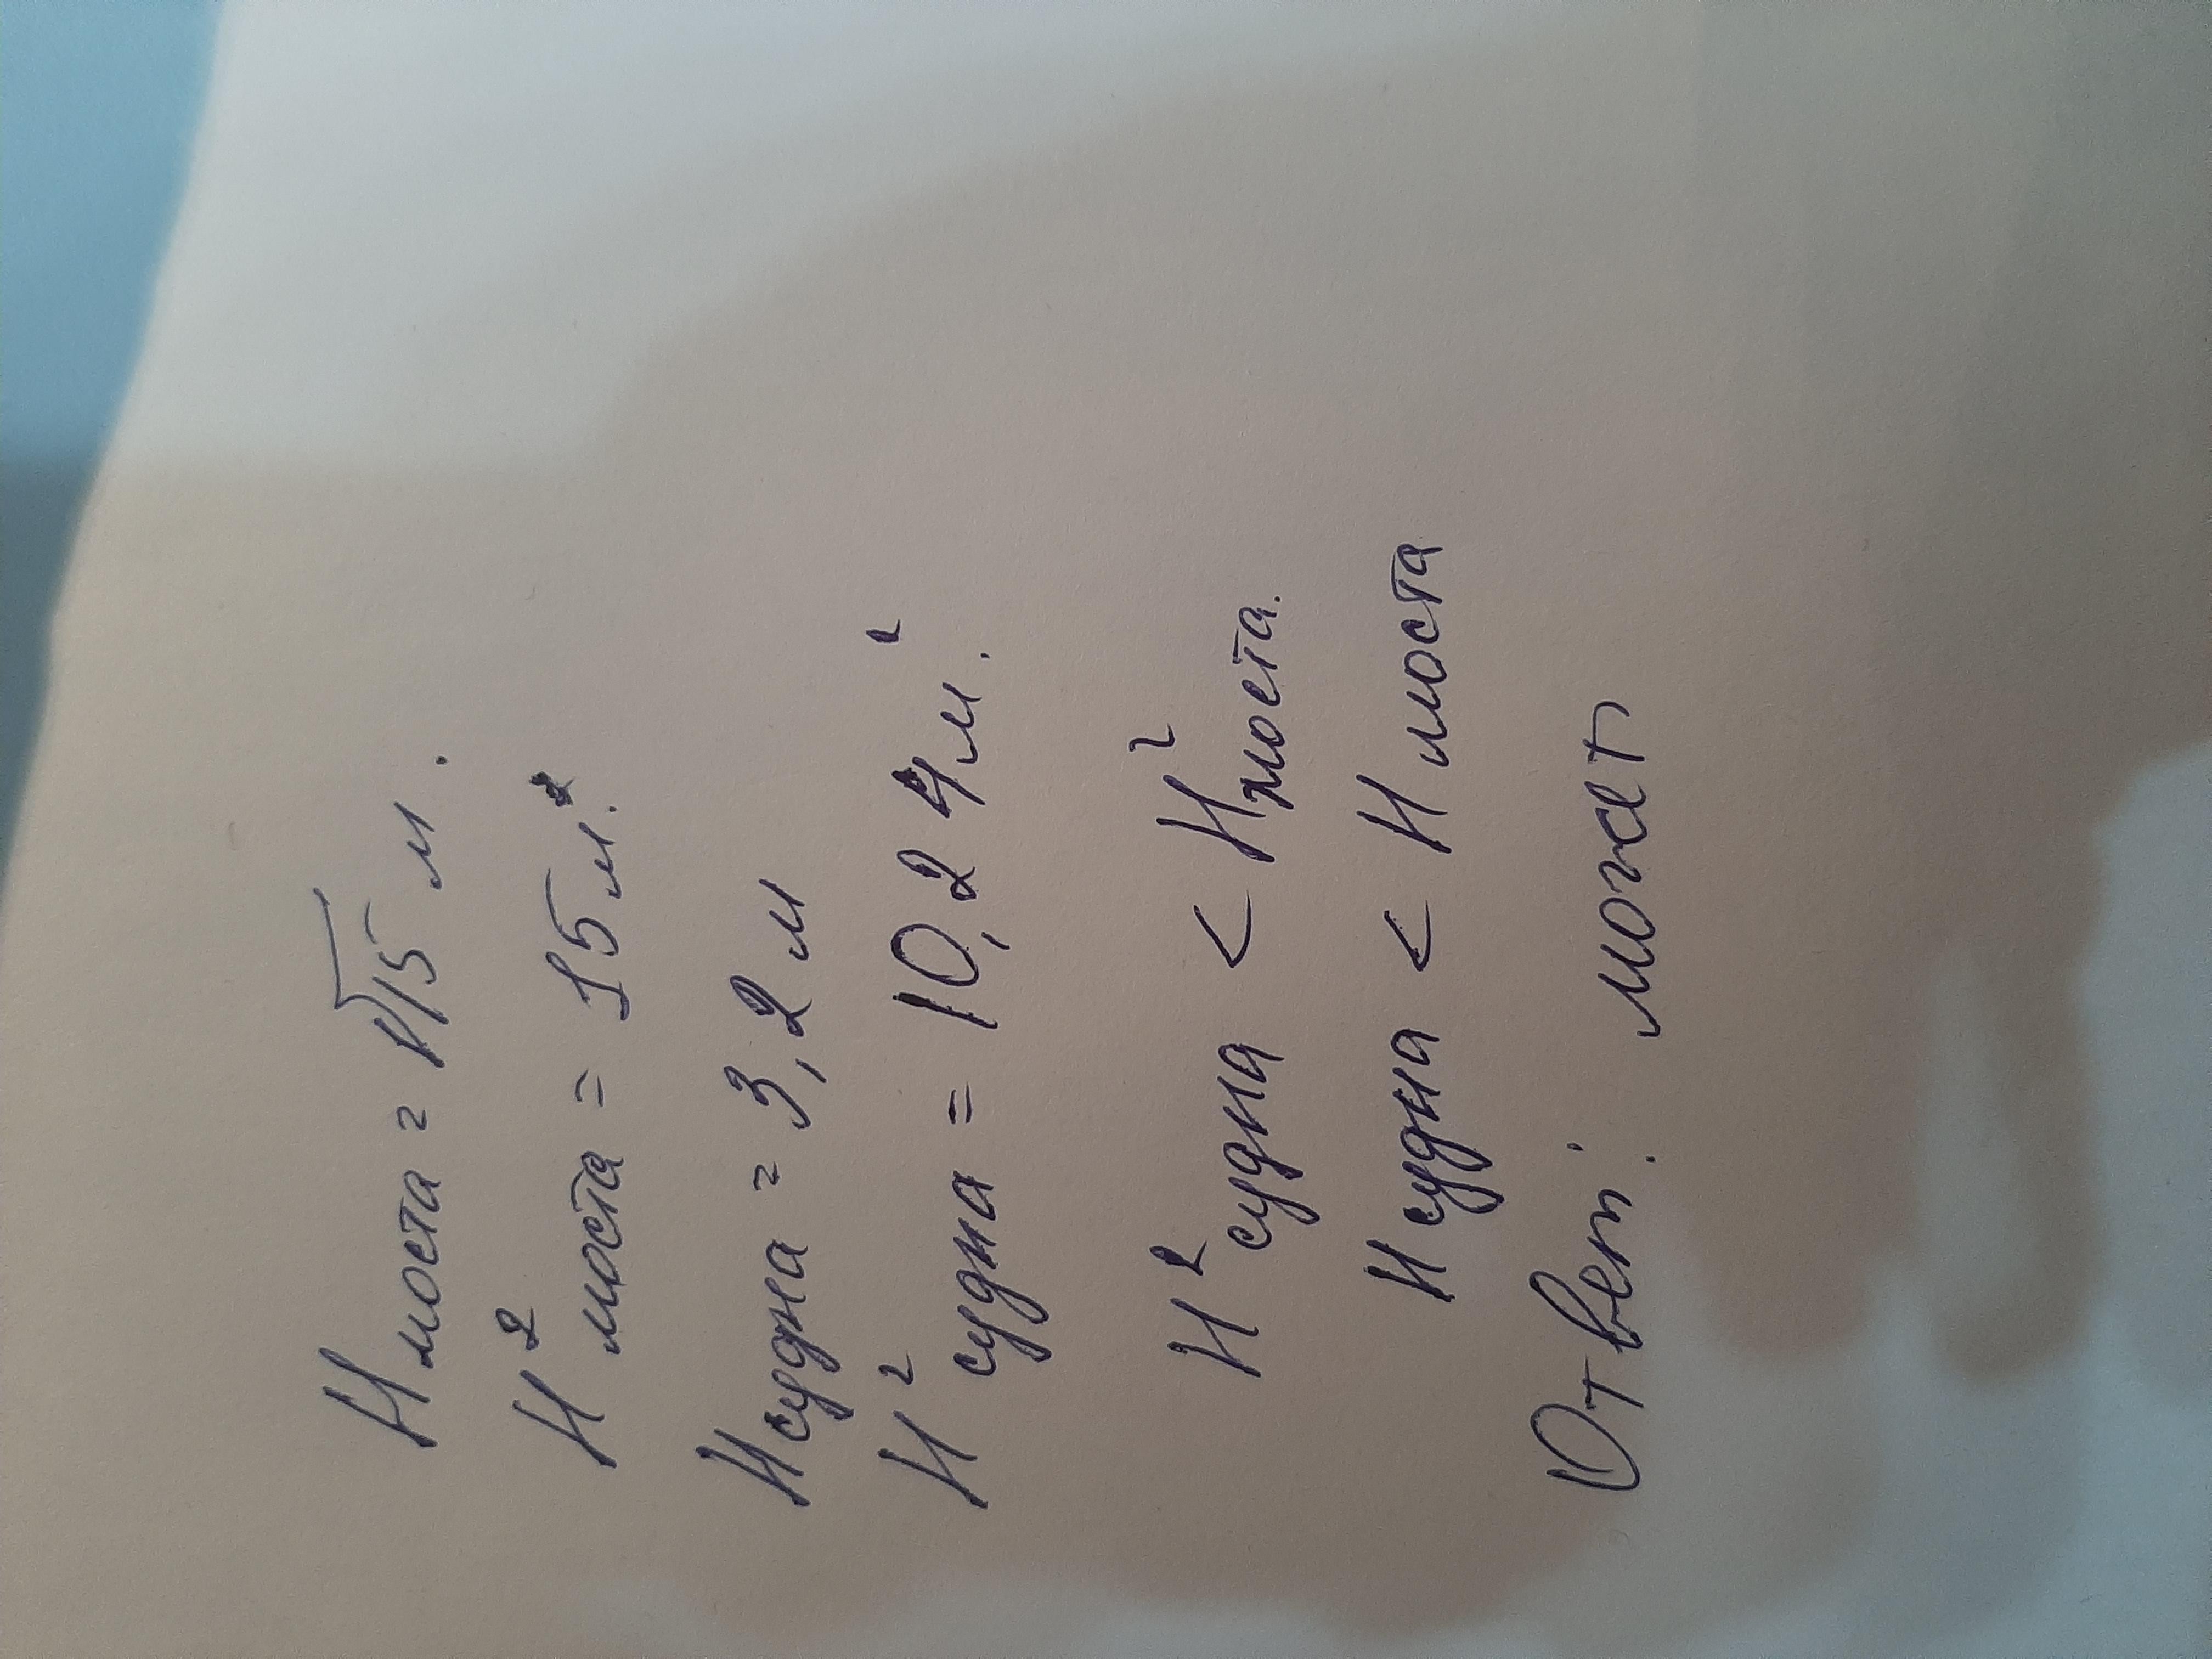 H моста = √15 м.
H² моста = 15 м.²
H судна = 3,2 м
H² судна = 10,24 м.²
H² судна < H² моста.
H судна < H моста
Ответ: может